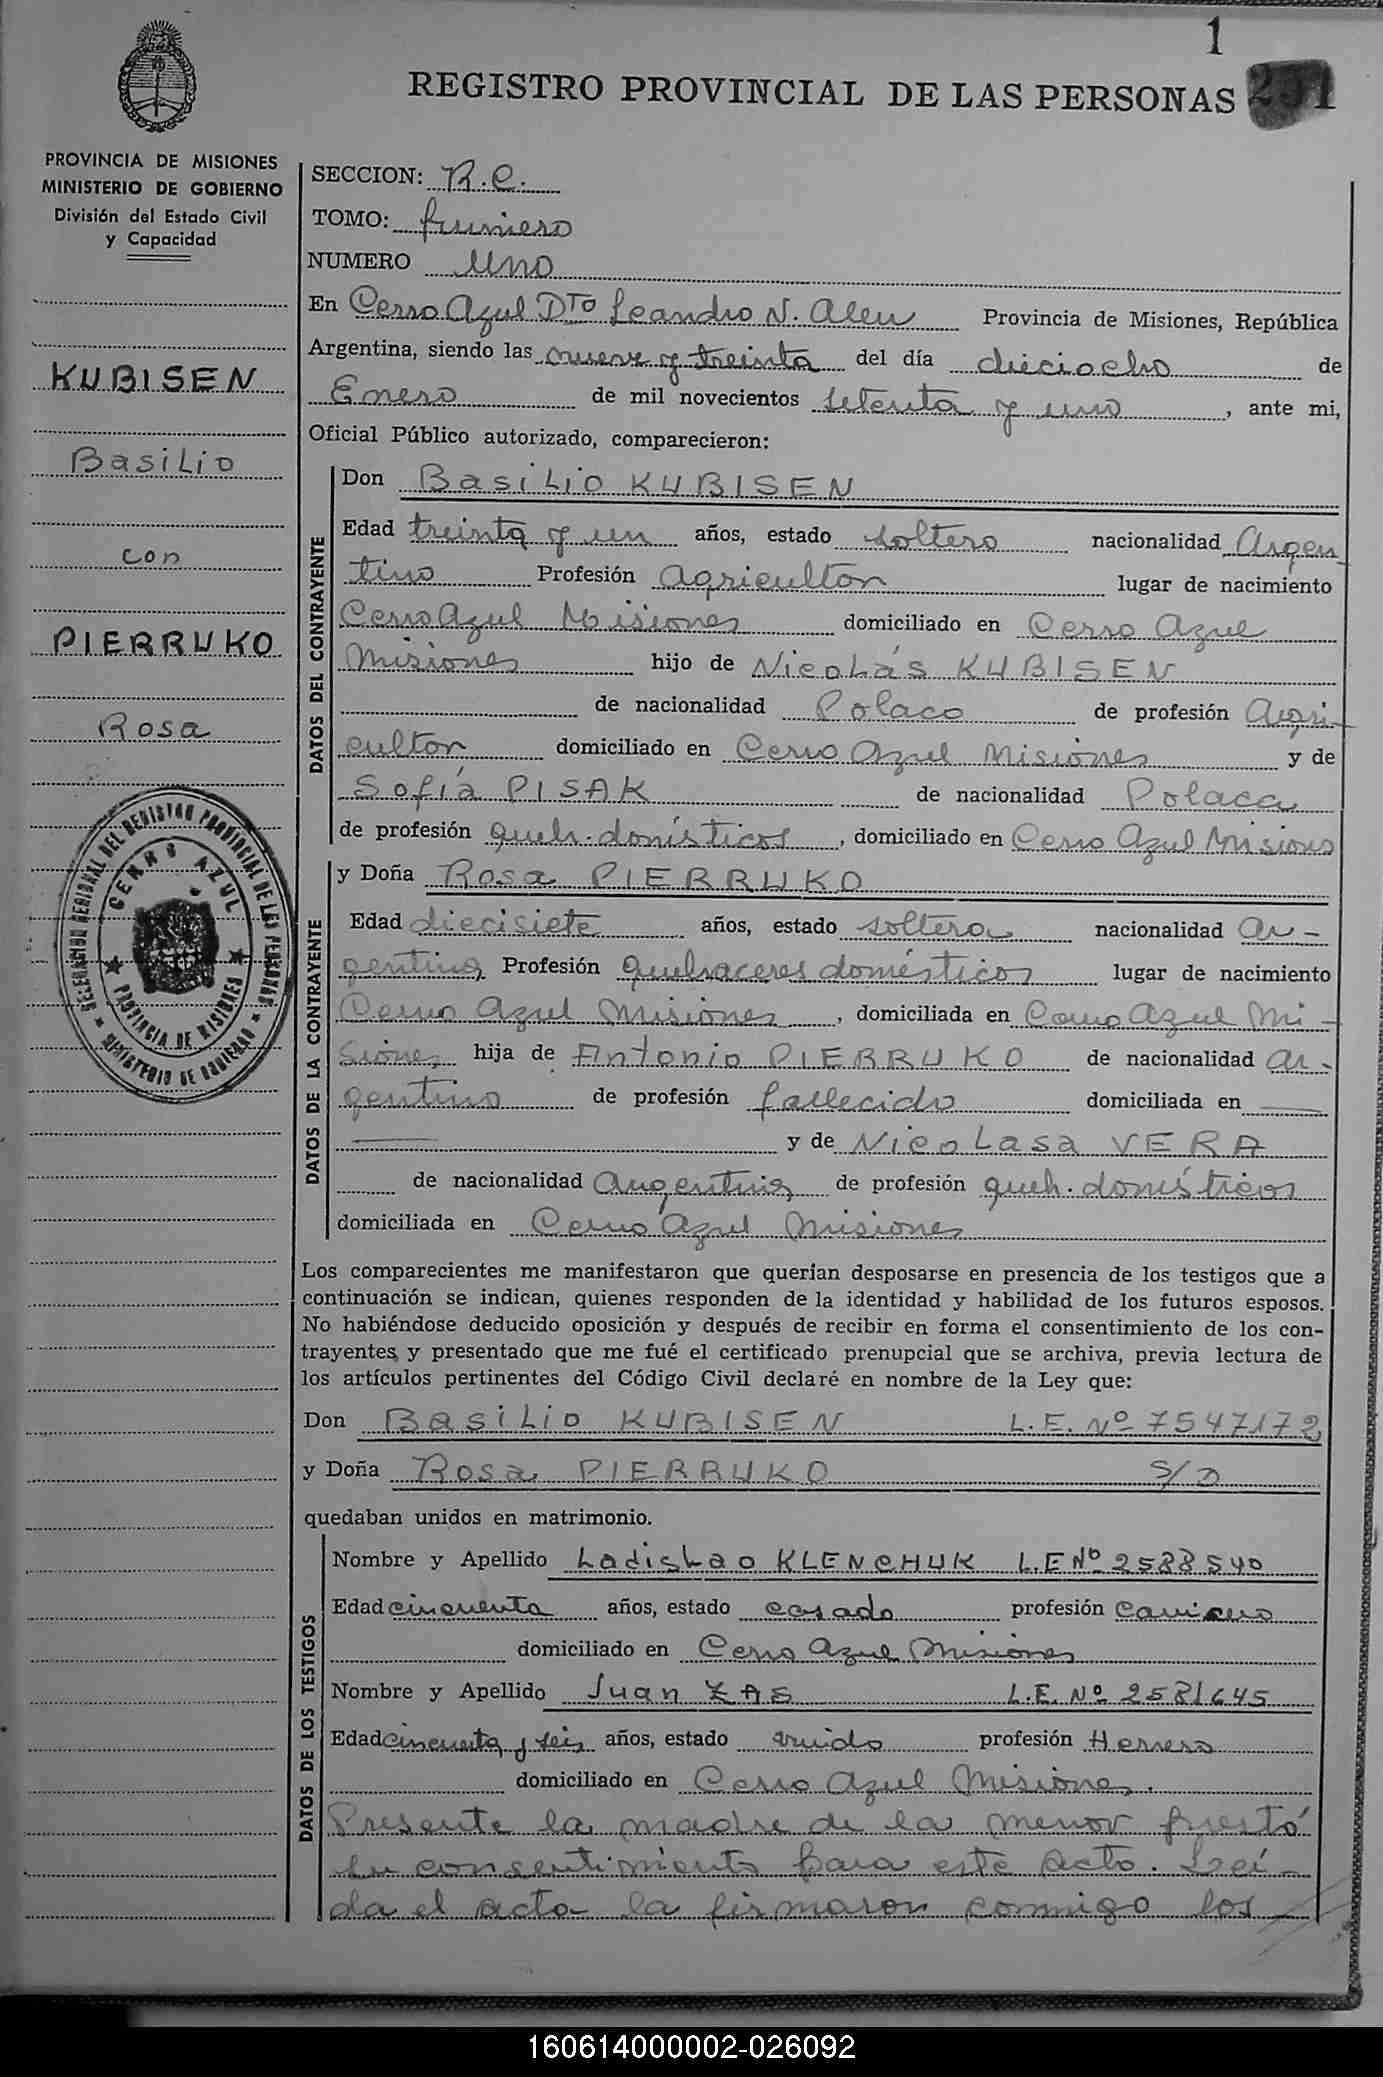 1
REGISTRO PROVINCIAL DE LAS PERSONAS 291
PROVINCIA DE MISIONES
MINISTERIO DE GOBIERNO
División del Estado Civil
y Capacidad
KUBISEN
Basilio
con
PIERRUKO
Rosa
DELEGACION REGIONAL DEL REGISTRO PROVINCIAL DE LAS PERSONAS
CERRO AZUL
PROVINCIA DE MISIONES
MINISTERIO DE GOBIERNO
SECCION: R.C.
TOMO: primero
NUMERO Uno
En Cerro Azul Dto Leandro N. Alem Provincia de Misiones, República
Argentina, siendo las nueve y treinta del día dieciocho de
Enero de mil novecientos setenta y uno, ante mi,
Oficial Público autorizado, comparecieron:
DATOS DEL CONTRAYENTE
Don Basilio KUBISEN
Edad treinta y un años, estado soltero nacionalidad Argen
tino Profesión agricultor lugar de nacimiento
Cerro Azul Misiones domiciliado en Cerro Azul
Misiones hijo de Nicolás KUBISEN
de nacionalidad Polaco de profesión Agri-
cultor domiciliado en Cerro Azul Misiones y de
Sofía PISAK de nacionalidad Polaca
de profesión queh. domésticos, domiciliado en Cerro Azul Misiones
DATOS DE LA CONTRAYENTE
y Doña Rosa PIERRUKO
Edad diecisiete años, estado soltera nacionalidad ar-
gentina Profesión quehaceres domésticos lugar de nacimiento
Cerro Azul Misiones, domiciliada en Cerro Azul Mi-
siones hija de Antonio PIERRUKO de nacionalidad ar-
gentino de profesión fallecido domiciliada en —
— y de Nicolasa VERA
de nacionalidad Argentina de profesión queh. domésticos
domiciliada en Cerro Azul Misiones
Los comparecientes me manifestaron que querían desposarse en presencia de los testigos que a
continuación se indican, quienes responden de la identidad y habilidad de los futuros esposos.
No habiéndose deducido oposición y después de recibir en forma el consentimiento de los con-
trayentes, y presentado que me fué el certificado prenupcial que se archiva, previa lectura de
los artículos pertinentes del Código Civil declaré en nombre de la Ley que:
Don Basilio KUBISEN L.E. Nº 7547172
y Doña Rosa PIERRUKO S/D
quedaban unidos en matrimonio.
DATOS DE LOS TESTIGOS
Nombre y Apellido Ladislao KLENCHUK L.E Nº 2588540
Edad cincuenta años, estado casado profesión carnicero
domiciliado en Cerro Azul Misiones
Nombre y Apellido Juan ZAS L.E. Nº 2581645
Edad cincuenta y seis años, estado viudo profesión Herrero
domiciliado en Cerro Azul Misiones.
Presente la madre de la menor prestó
su consentimiento para este acto. Leí-
da el acta la firmaron conmigo los
160614000002-026092